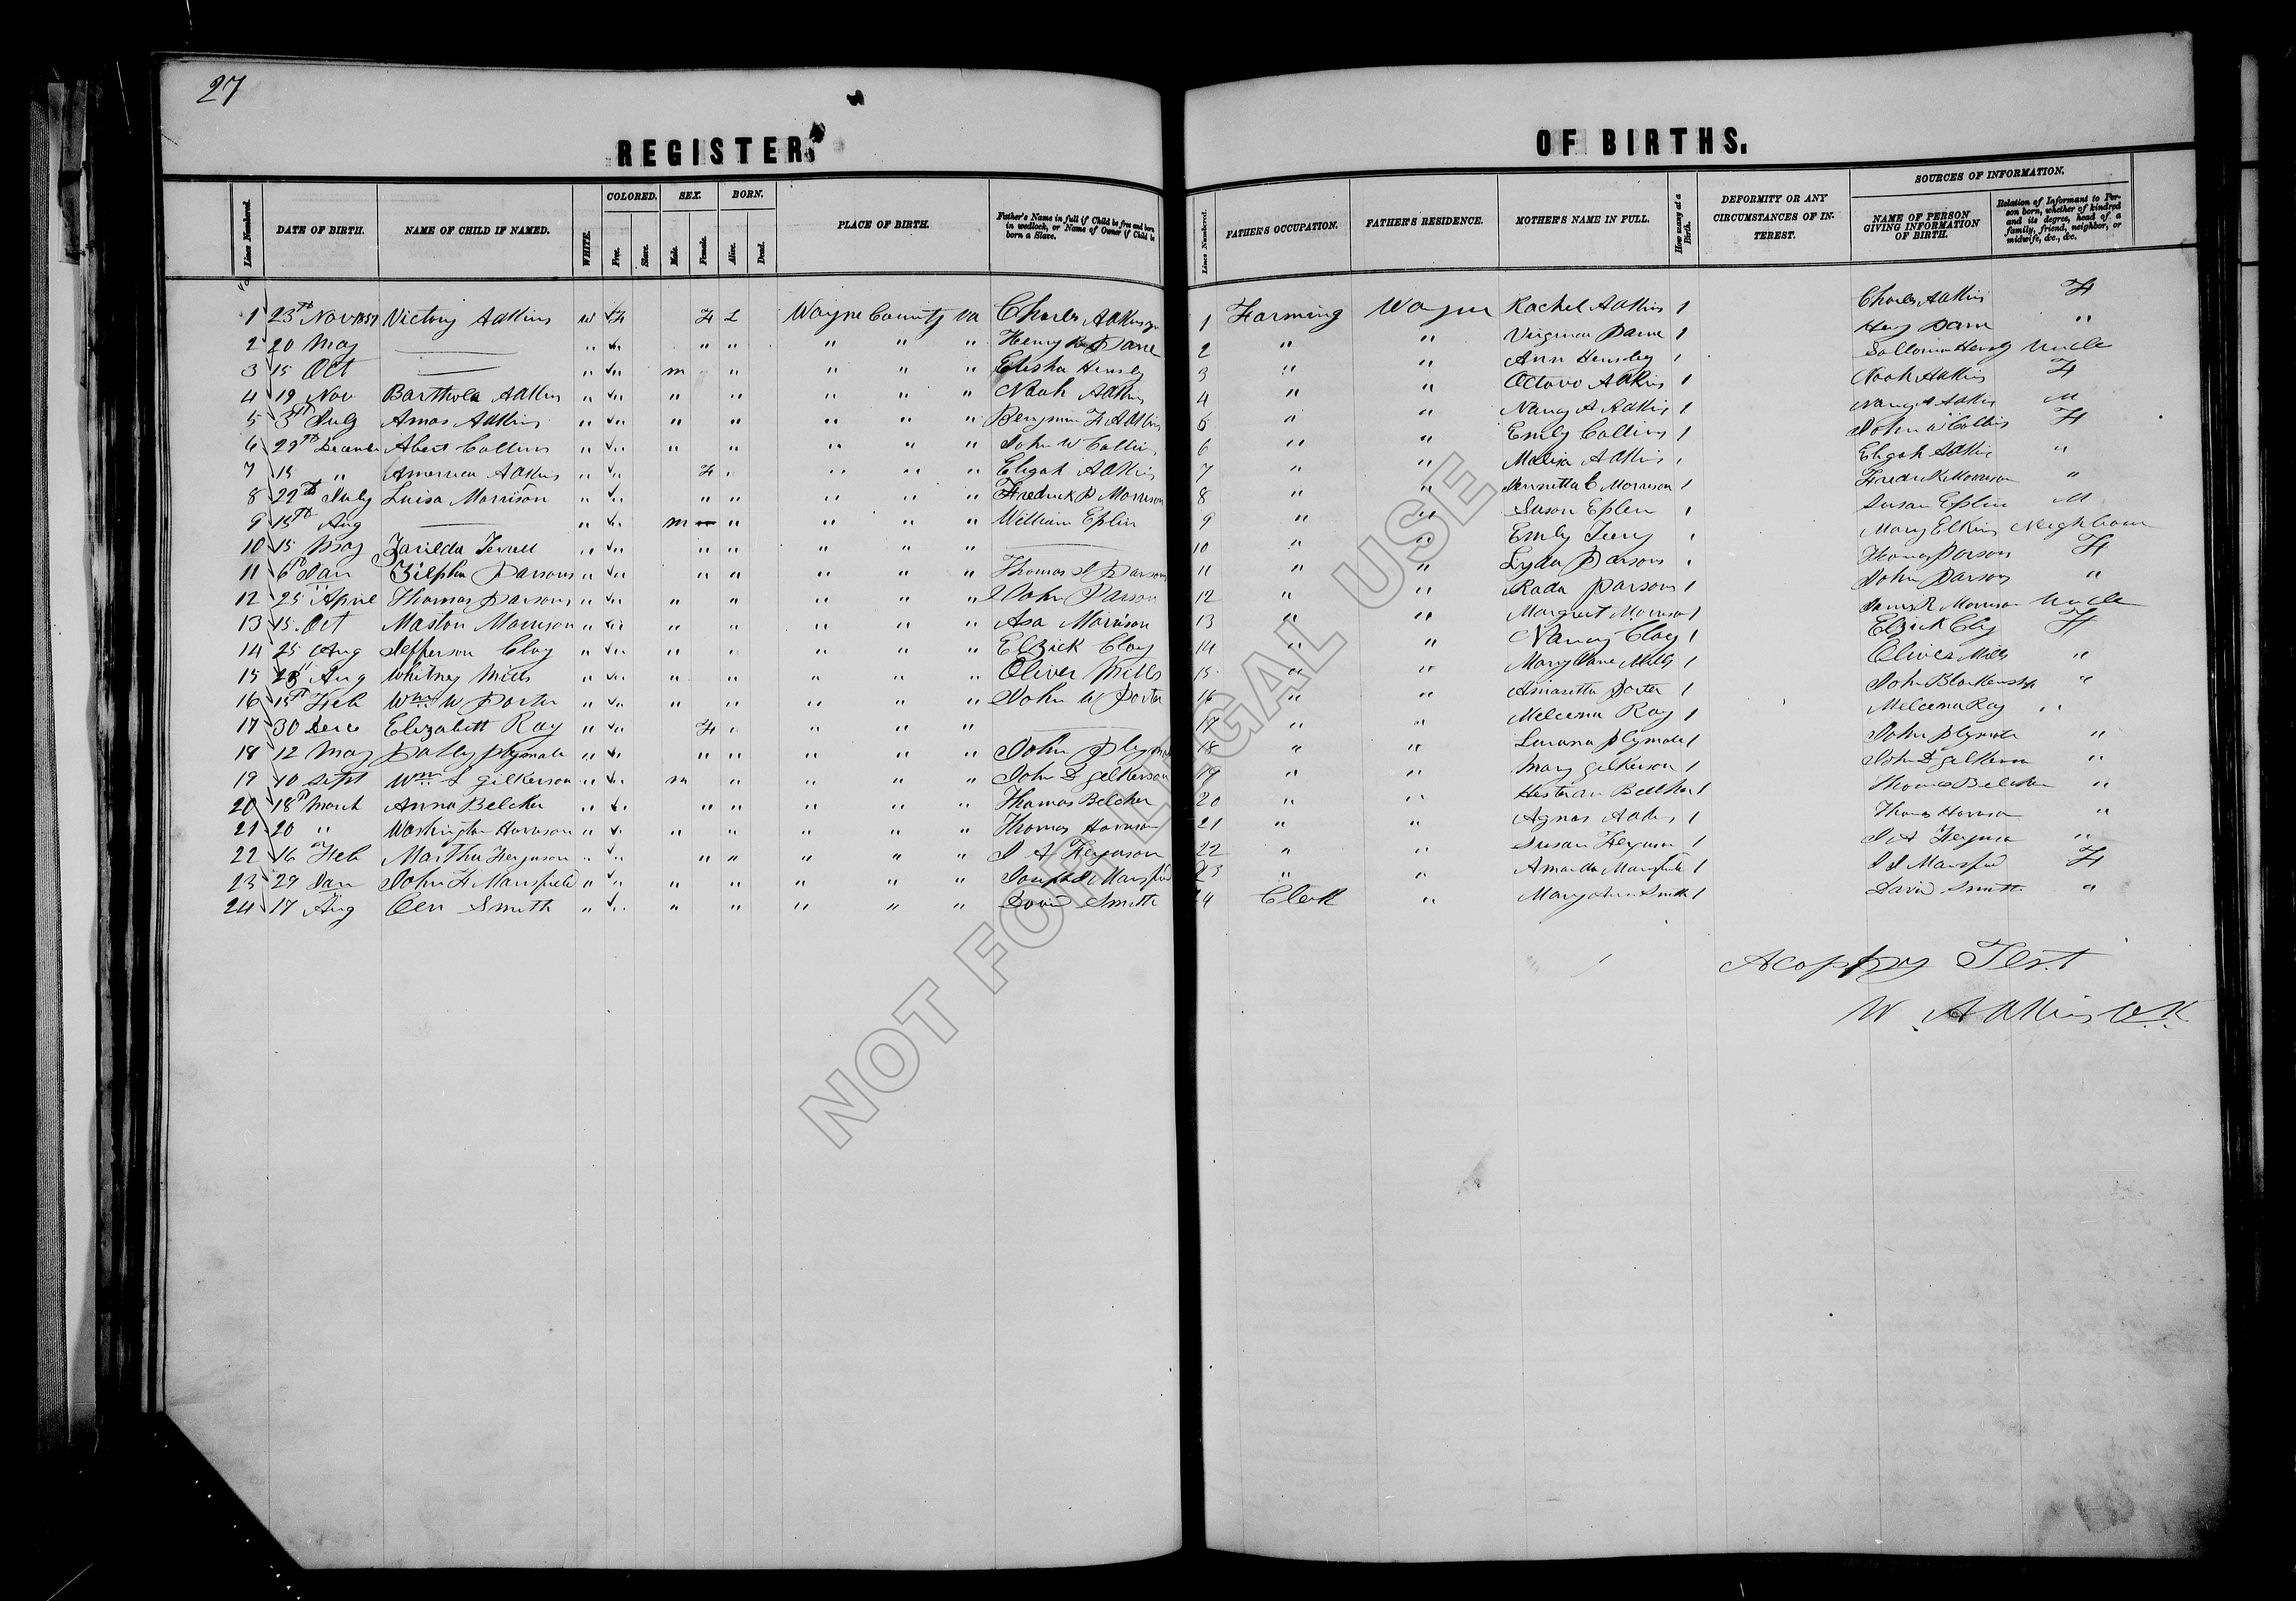 27
REGISTER
OF BIRTHS.
Lines Numbered. DATE OF BIRTH. NAME OF CHILD IF NAMED. WHITE. COLORED. Free. Slave. SEX. Male. Female. BORN. Alive. Dead. PLACE OF BIRTH. Father's Name in full if Child be free and born in wedlock, or Name of Owner if Child be born a Slave.
Lines Numbered. FATHER'S OCCUPATION. FATHER'S RESIDENCE. MOTHER'S NAME IN FULL. How many at a Birth. DEFORMITY OR ANY CIRCUMSTANCES OF INTEREST. SOURCES OF INFORMATION. NAME OF PERSON GIVING INFORMATION OF BIRTH. Relation of Informant to Person born, whether of kindred and its degree, head of a family, friend, neighbor, or midwife, &c., &c.
1 23 Nov 1859 Victory Adkins w F F L Wayne County Va Charles Adkins 1 Farming Wayne Rachel Adkins 1 Charles Adkins F
2 20 May " " " " " " " Henry 2 " " Virginia 1 "
3 15 Oct " " m " " " " Elisha Hensley 3 " " Ann Hensley 1 Uncle
4 19 Nov Adkins " " " " " " " Noah Adkins 4 " " Adkins 1 Noah Adkins F
5 3 July Amos Adkins " " " " " " " Benjamin F Adkins 5 " " Nancy A Adkins 1 Nancy A Adkins M
6 29th December Albert Collins " " " " " " " John W Collins 6 " " Emily Collins 1 John W Collins F
7 15 " America Adkins " " F " " " " Eligah Adkins 7 " " Adkins 1 Eligah Adkins "
8 22th July Luisa Morrison " " " " " " " Fredrick P Morrison 8 " " C Morrison 1 Fredrick Morrison "
9 15th Aug " " m " " " " William Eplin 9 " " Susan Eplin 1 Susan Eplin M
10 15 May " " " " " " " 10 " " Emily 1 Mary Elkins Neighbour
11 6th Jan Zilpha Parsons " " " " " " " Thomas Parsons 11 " " Lyda Parsons 1 Thomas Parsons F
12 25 April Thomas Parsons " " " " " " " John Parson 12 " " Rada Parsons 1 John Parsons "
13 15 Oct Maston Morrison " " " " " " " Asa Morrison 13 " " Margret Morrison 1 James R Morrison Uncle
14 25 Aug Jefferson Clay " " " " " " " Elzick Clay 14 " " Nancy Clay 1 Elzick Clay F
15 28 Aug Whitney Mills " " " " " " " Oliver Mills 15 " " Mary Jane Mills 1 Oliver Mills "
16 15th Feb Wm W Porter " " " " " " " John W Porter 16 " " Porter 1 John Blankenship "
17 30 Dece Elizabeth Ray " " F " " " " 17 " " Melcena Ray 1 Melcena Ray "
18 12 May Polly Plymale " " " " " " " John Plymale 18 " " Plymale 1 John Plymale "
19 10 Sept Wm S Gilkerson " " m " " " " John D Gilkerson 19 " " Mary Gilkerson 1 John D Gilkerson "
20 18th March Anna Belcher " " " " " " " Thomas Belcher 20 " " 1 Thomas Belcher "
21 20 " Washington Harrison " " " " " " " Thomas Harrison 21 " " Agnes 1 Thomas Harrison "
22 16 Feb Martha Ferguson " " " " " " " Ferguson 22 " " Susan Ferguson 1 Ferguson "
23 29 Jan John F Mansfield " " " " " " " Joseph Mansfield 23 " " Amanda Mansfield 1 F
24 17 Aug Smith " " " " " " " David Smith 24 Clerk " Mary Ann Smith 1 David Smith "
A coppy Test
W. Adkins Clk
NOT FOR LEGAL USE